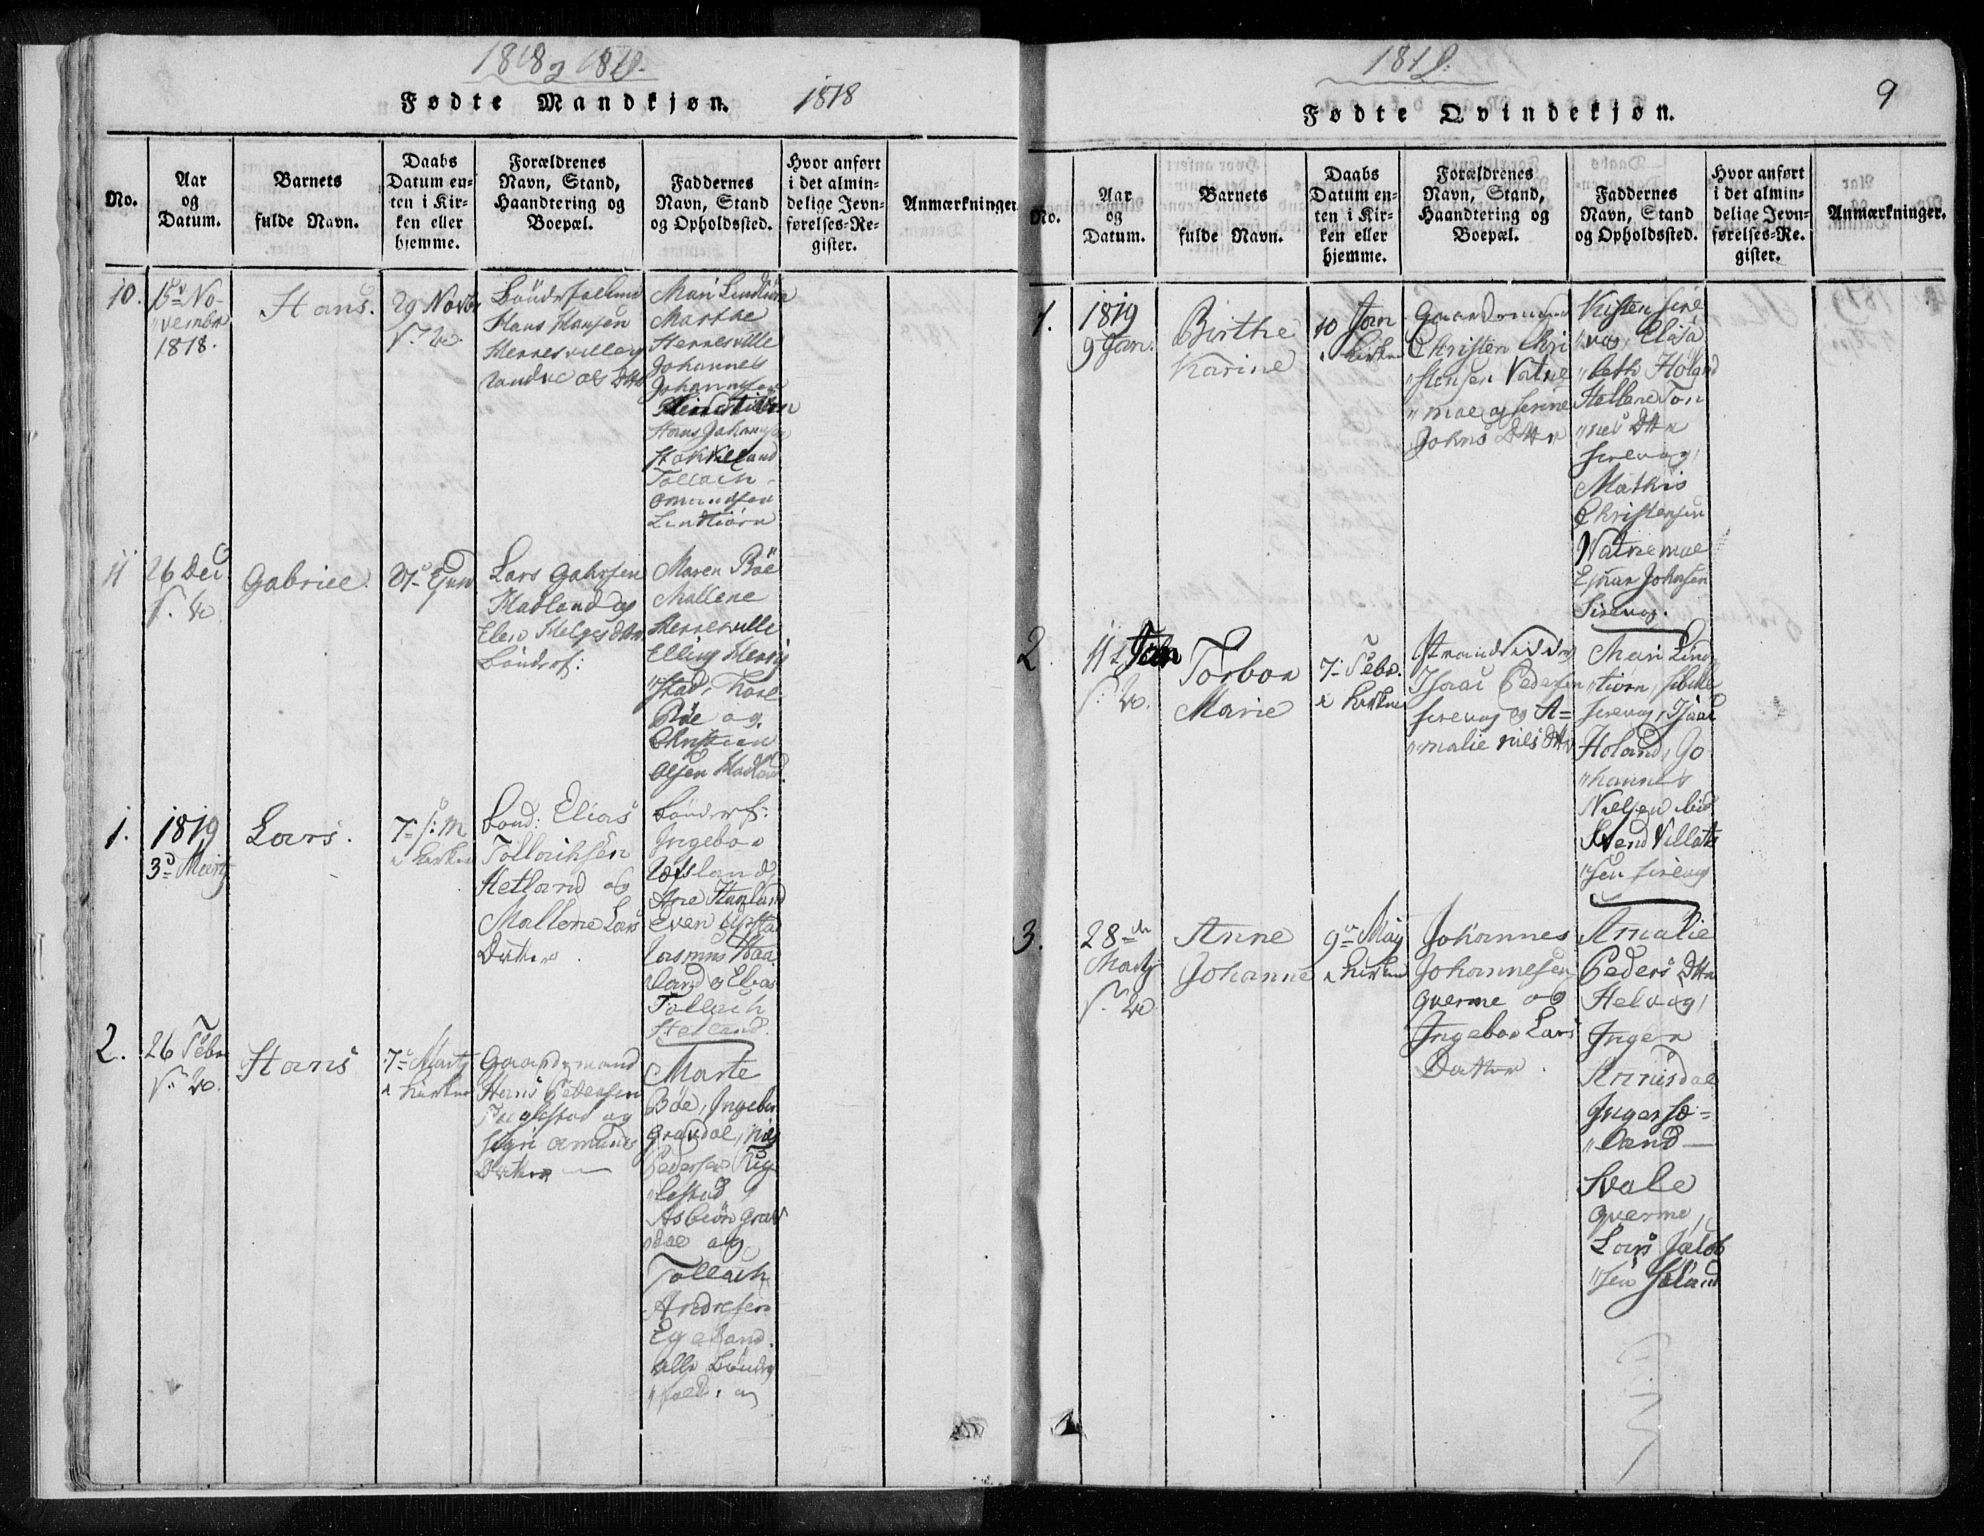 1818 og 1819.
Fødte Mandkjøn. 1818
No.
Aar
og
Datum.
Barnets
fulde Navn.
Daabs
Datum en-
ten i Kir-
ken eller
hjemme.
Forældrenes
Navn, Stand,
Haandtering og
Boepæl.
Faddernes
Navn, Stand
og Opholdssted.
Hvor anført
i det almin-
delige Jevn-
førelses-Re-
gister.
Anmærkninger
10.
No-
vembr
1818.
Hans.
29 Novbr
Bønderfolkene
Hans Hansen
Hennesville og
Mari Lindtiørn
Marthe
Hennesville
Johannes
Johannesen
Lindtiørn
Hans Johannesen
Tollach
Omundsen
Lindtiørn
11
26 Dec
Gabriel.
Lars Gabrsen
Madland og
Elen Helges Dttr
Bønderf:
Maren Bøe
Mallene
Hennesville
Elling
stad, Tore
Bøe og
Christian
Olsen Madland
1.
1819
3d Martz
Lars.
7d s: M
i Kirken
Bond: Elias
Tollachsen
Hetland og
Mallene Lars
Datter.
Bønderf:
Ingebor
Ane
Even
Rasmus Haa
land og Elias
Tollach
Hetland.
2.
26 Febr
Hans
7d Martz
i Kirken
Gaardmand
Hans Pedersen
Fuglestad og
Siri Omunds
Datter
Marte
Bøe, Ingebor
Gravdal, Nils
Pedersen Fug
"lestad
Asbiørn Grav
dal og
Tollach
Andresen
Egeland.
alle Bønder
"folk.
1819.
9
Fødte Qvindekjøn.
No.
Aar
og
Datum.
Barnets
fulde Navn.
Daabs
Datum en-
ten i Kir-
ken eller
hjemme.
Forældrenes
Navn, Stand,
Haandtering og
Boepæl.
Faddernes
Navn, Stand
og Opholdssted.
Hvor anført
i det almin-
delige Jevn-
førelses-Re-
gister.
Anmærkninger.
1.
1819
9 Jan.
Birthe
Karine
10 Jan
i Kirken
Gaardmand
Christen Chri
"stensen Vatne
"moe og Serine
Johns Dttr
Kisten Sire
"vog, Elisa
"beth Høland
Hellene Tøn
"nes Dttr
Sirevog,
Mathis
Christensen
Vatnemoe
Johnsen
Sirevog.
2
11 Jan
Torbor
Marie
7d Febr.
i Kirken
Strandsidder
Isaac Pedersen
Sirevog og A=
"malie Nils Dttr
Mari Lind
"tiørn, Sibille
Sirevog, Isaac
Høland, Jo
"hannes
Nielsen
Svend Villats
"sen Sirevog
3.
28de
Martz
Anne
Johanne
9de Maj
i Kirken
Johannes
Johannesen
Qverme og
Ingebor Lars
Datter.
Amalie
Peders Dttr
Helvog,
Inger
Annisdal
Inger Sø=
"land
Svale
Qverme,
Lars Jacob
"sen Søland